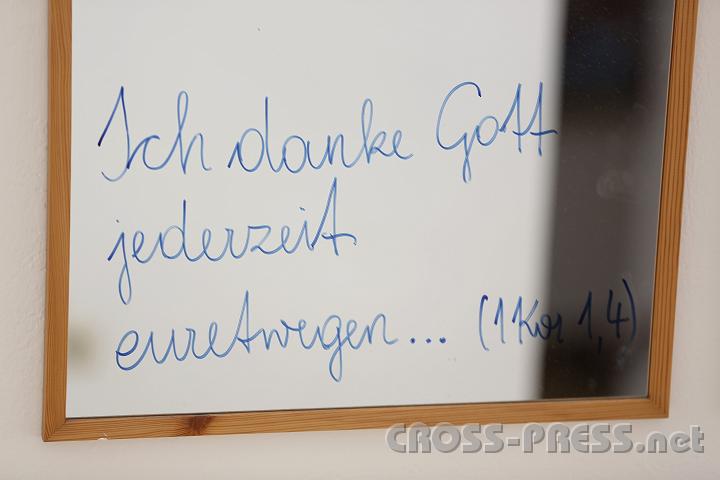 Ich danke Gott
jederzeit
euretwegen... (1 Kor 1,4)
CROSS-PRESS.net